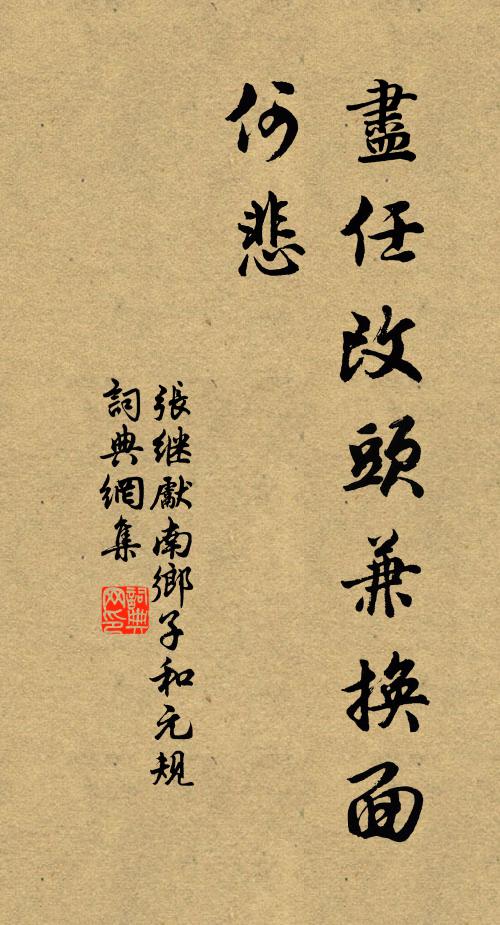 盡任改頭兼換面
何悲
張继獻南鄉子和元規
詞典網集
詞典
网印